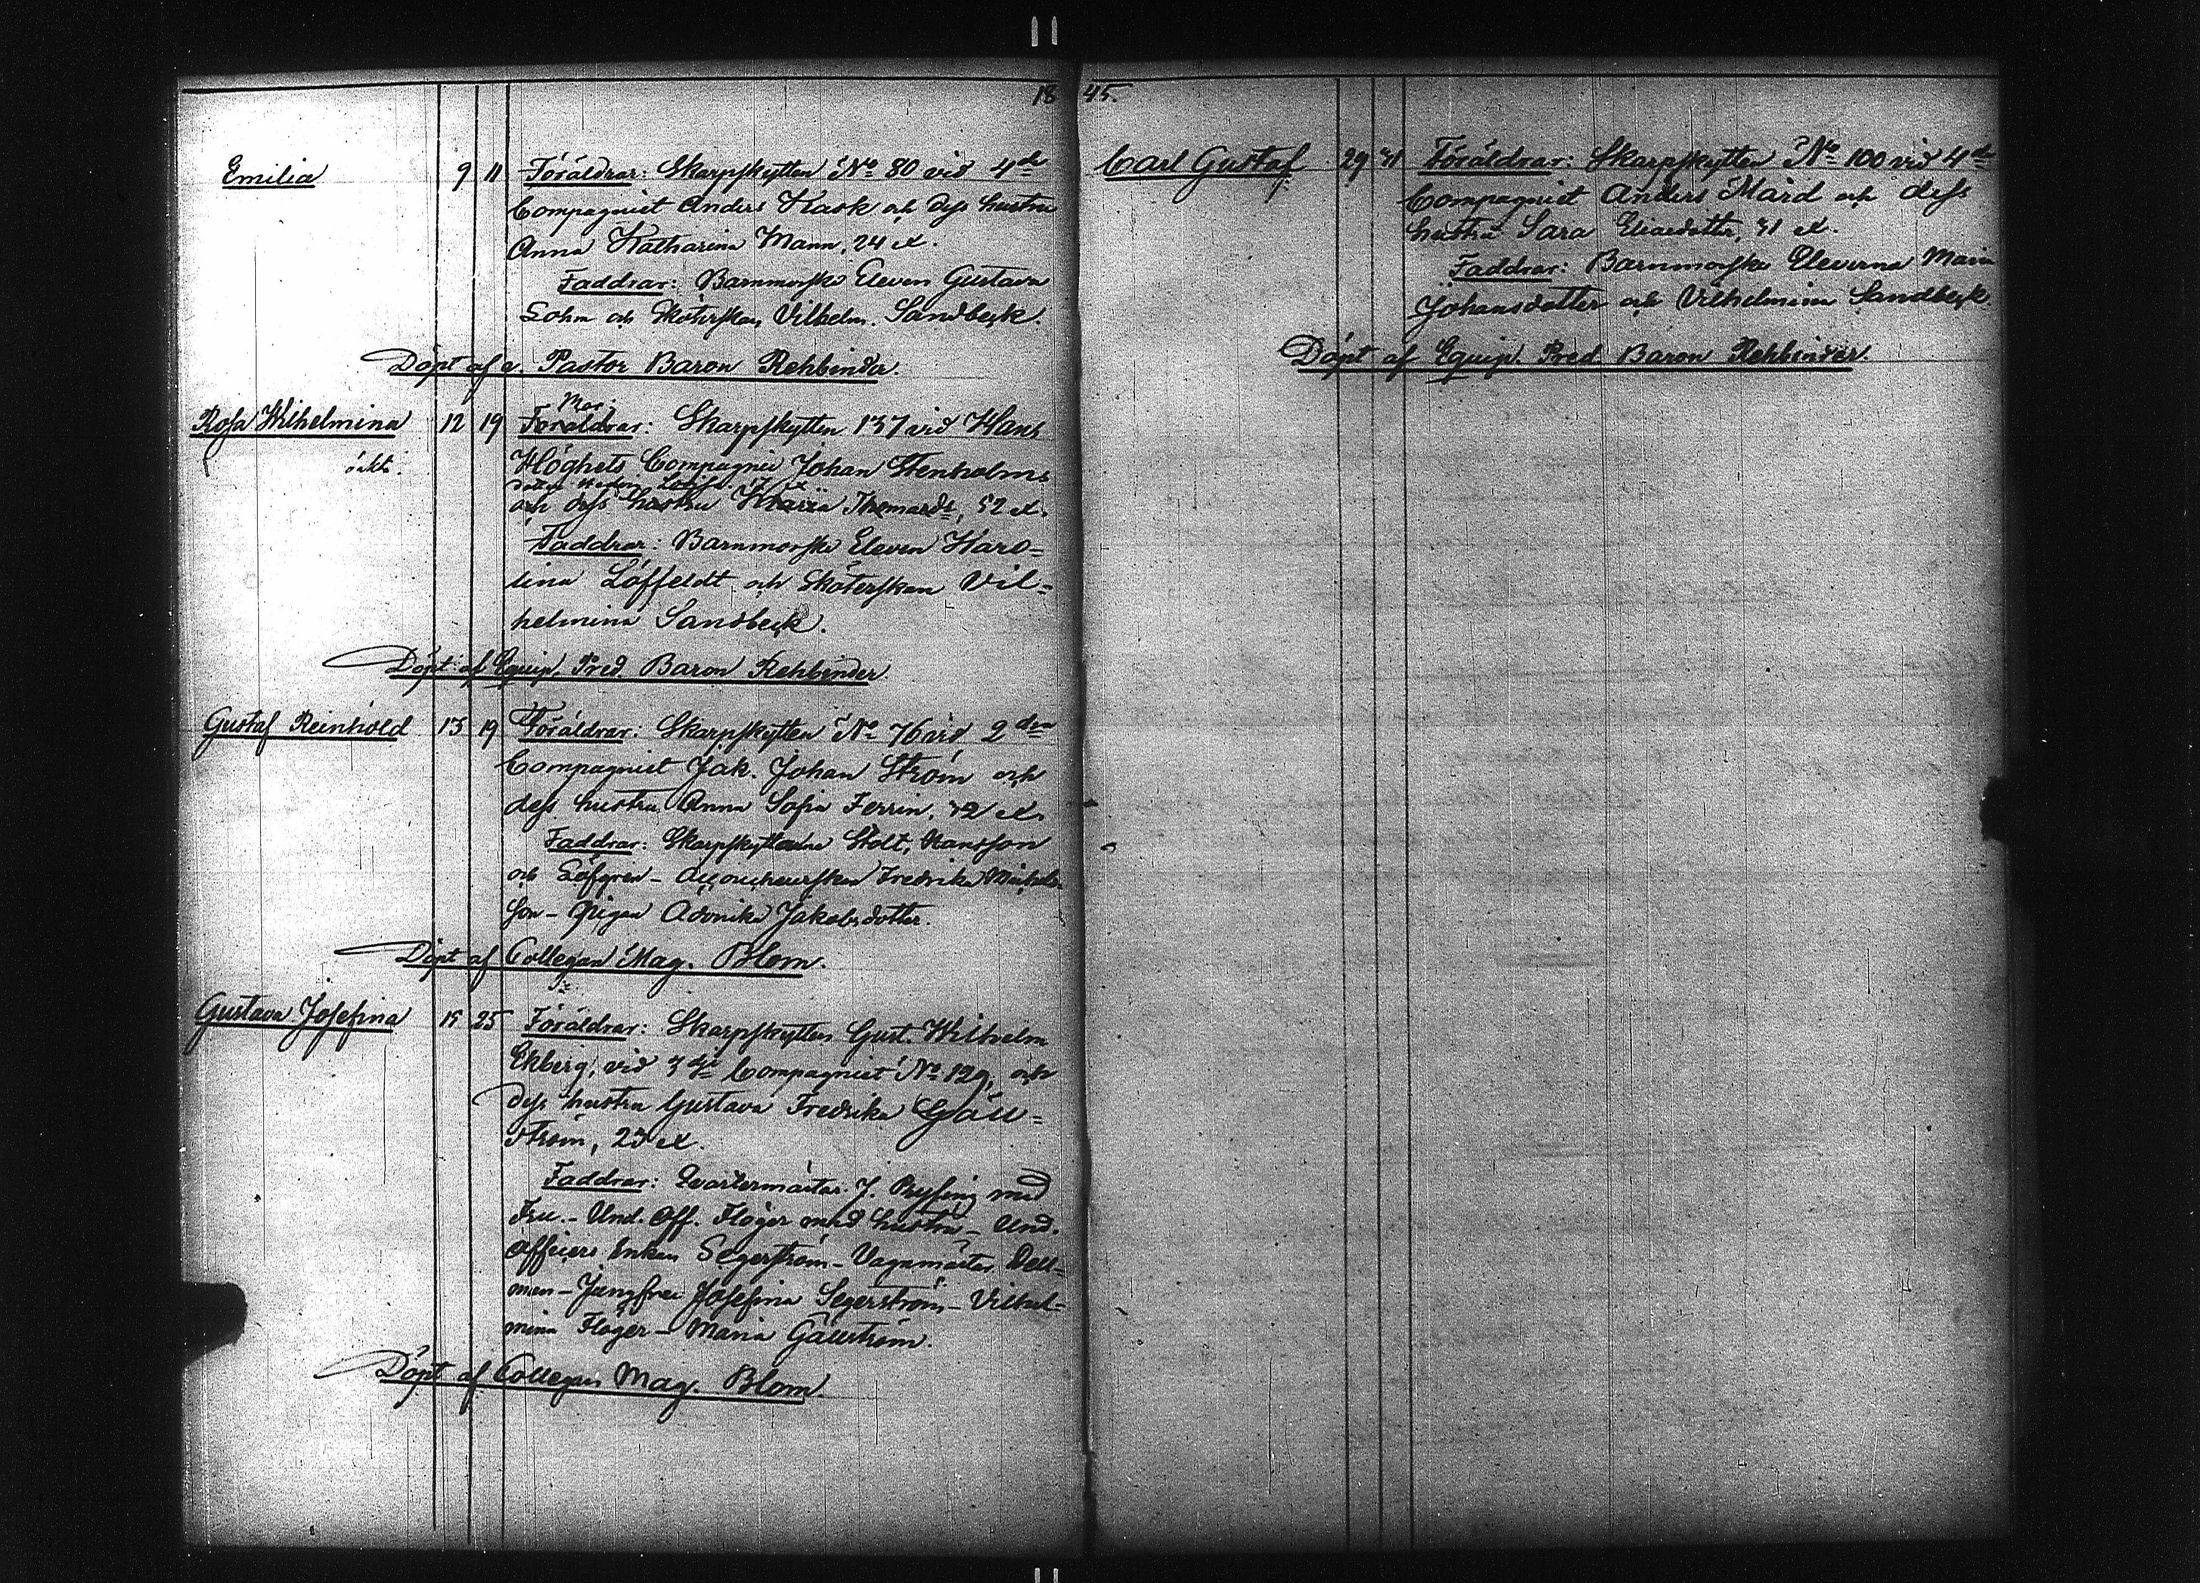 1845.
Emilia 9 11 Föräldrar: Skarpskytten No 80 vid 4de
Compagniet Anders Kask och dess hustru
Anna Katharina Mann, 24 et.
Faddrar: Barnmorske Eleven Gustava
Lohm och Sköterskan Vilhelm. Sandbeck.
Döpt af v. Pastor Baron Rehbinder.
Mor:
Rosa Wilhelmina 12 19 Föräldrar: Skarpskytten 137 vid Hans
öäkta. Höghets Compagnie Johan Stenholms
dotter Hedvig Lovisa
och dess hustru Maria Thomasdr, 52 et.
Faddrar: Barnmorske Eleven Karo=
lina Löffeldt och Sköterskan Vil=
helmina Sandbeck.
Döpt af Equip. Pred. Baron Rehbinder
Gustaf Reinhold 13 19 Föräldrar: Skarpskytten No 76 vid 2dra
Compagniet Jak. Johan Ström och
dess hustru Anna Sofia Ferrin, 32 et.
Faddrar: Skarpskyttarne Stolt, Hansson
och Löfgren - Accoucheurskan Fredrika Michels=
son - Pigan Adonika Jakobsdotter.
Döpt af Collegan Mag. Blom.
Gustava Josefina 15 25 Föräldrar: Skarpskytten Gust. Wilhelm
Ekberg, vid 3dje Compagniet No 129, och
dess hustru Gustava Fredrika Gäll=
ström, 23 et.
Faddrar: Qvartermästar J. Ryfing med
Fru. - Und. Off. Flöger med hustru - Und.
officiers Enkan Segerström - Vagnmäster Dall=
man - Jungfru Josefina Segerström - Vilhel=
mina Flöger - Maria Gällström.
Döpt af Collegan Mag. Blom.
Carl Gustaf 29 31 Föräldrar: Skarpskytten No 100 vid 4de
Compagniet Anders Mård och dess
hustru Sara Eliaedotter, 31 et.
Faddrar: Barnmorske Eleverna Maria
Johansdotter och Vilhelmina Sandbeck.
Döpt af Equip. Pred. Baron Rehbinder.